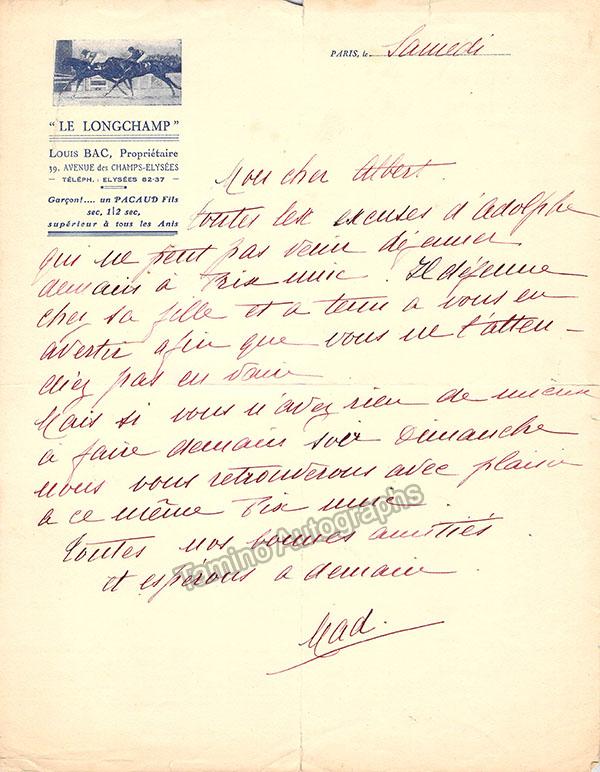 PARIS, le Samedi
"LE LONGCHAMP"
LOUIS BAC, Propriétaire
39, AVENUE des CHAMPS-ELYSÉES
TÉLÉPH. : ELYSÉES 82-37
Garçon!.... un PACAUD Fils
sec, 1|2 sec,
supérieur à tous les Anis
Mon cher Albert
toutes les excuses d'Adolphe
qui ne peut pas venir déjeuner
demain à . Il déjeune
chez sa fille et a tenu à vous en
avertir afin que vous ne l'atten-
diez pas en vain
Mais si vous n'avez rien de mieux
à faire demain soir Dimanche
nous vous retrouverons avec plaisir
à ce même
Toutes nos bonnes amitiés
et espérons à demain
Mad.
Tamino Autographs